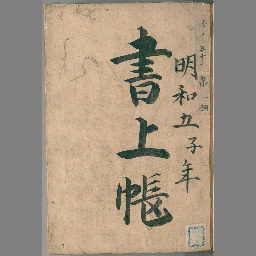 明和五子年
書上帳